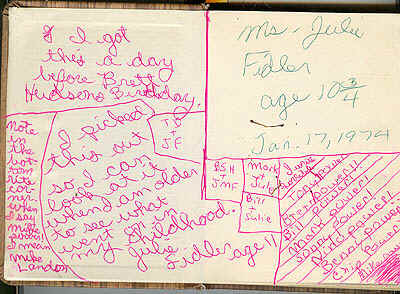 I I got
this a day
before Brett
Hudsons Birthday.
note
in
the
bot-
tom
rite
cor-
ner
when
I say
mike
power!
I man
mike
Landon
I picked
this out
so I can
look at it
when I am older
to see what
went on in
my childhood.
Julie
Fidler age 11
+
J.F.
Ms. Julie
Fidler
age 10 3/4
Jan. 17, 1974
BSH
+
JMF
Mark
+
Julie
Bill
+
Julie
Tony Power!
Brett Power!!
Bill Power!
Mark Power!
Power!
Power!
Power!
Chip Power!